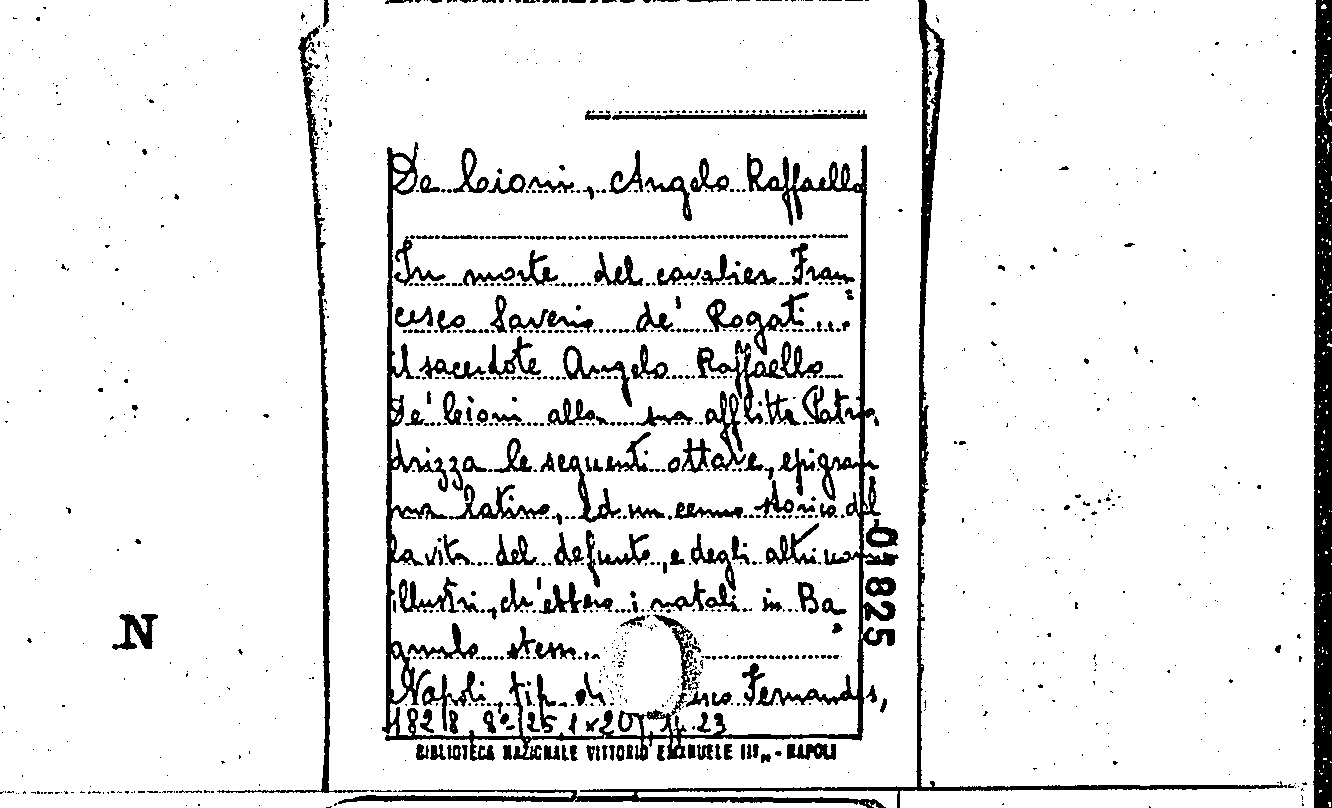 De Cioni, Angelo Raffaello
In morte del cavalier Fran=
cesco Saverio de' Rogati...
il sacerdote Angelo Raffaello
De' Cioni alla sua afflitta Patria
drizza le seguenti ottave, epigram
ma latino, ed un cenno storico del
la vita del defunto, e degli altri uomi
illustri, ch'ebbero i natali in Ba=
gnulo stesso.
Napoli, tip. di Fernandes,
1828, 8º
BIBLIOTECA NAZIONALE VITTORIO EMANUELE III„ - NAPOLI
01825
N